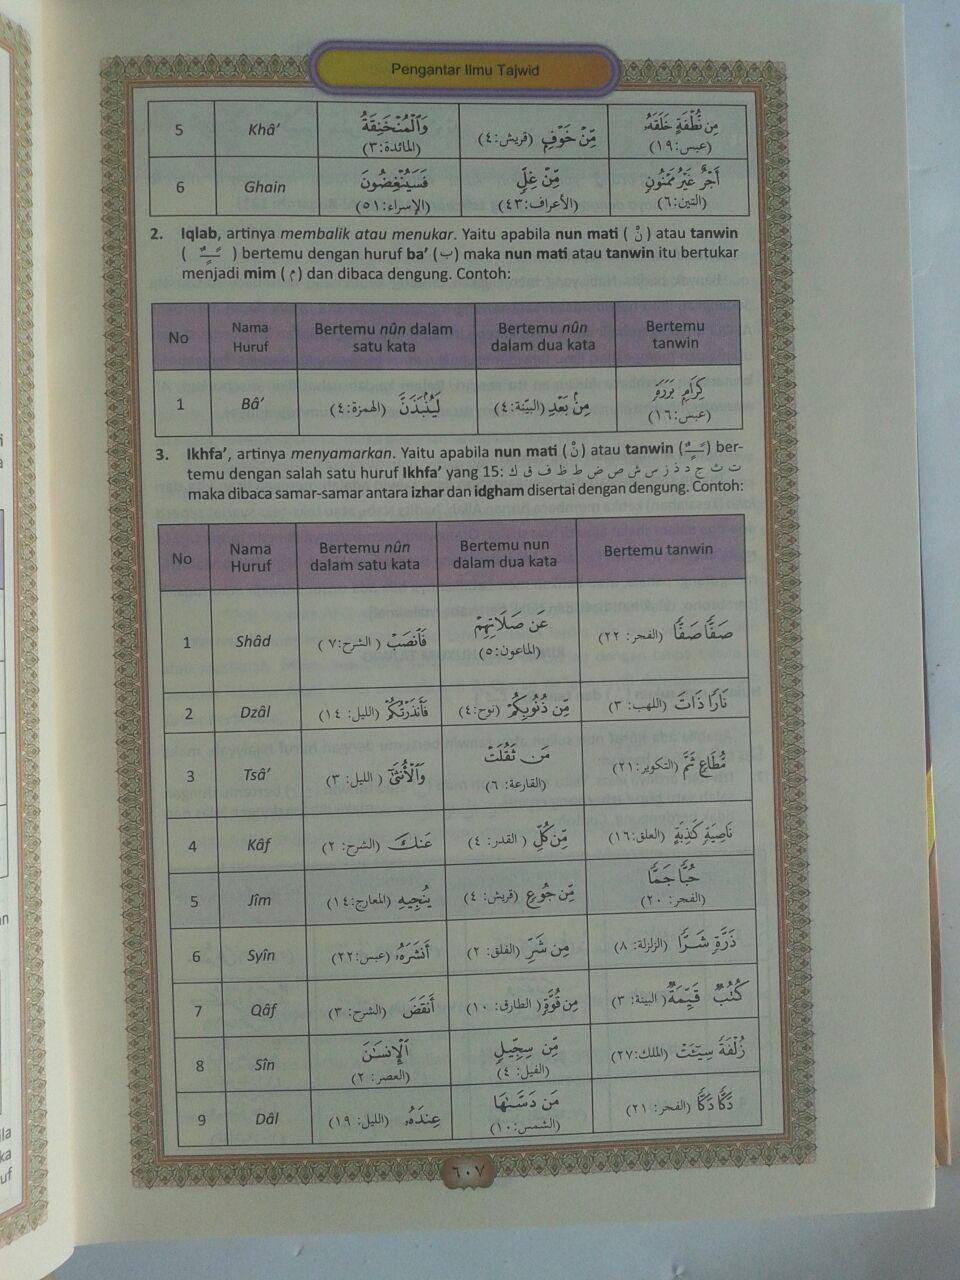 Pengantar Ilmu Tajwid
5 Khâ’ وَٱلْمُنْخَنِقَةُ (المائدة:٣) مِّنْ خَوْفٍ (قريش:٤) مِن نُّطْفَةٍ خَلَقَهُۥ (عبس:١٩)
6 Ghain فَسَيُنْغِضُونَ (الإسراء:٥١) مِّنْ غِلٍّ (الأعراف:٤٣) أَجْرٌ غَيْرُ مَمْنُونٍ (التين:٦)
2. Iqlab, artinya membalik atau menukar. Yaitu apabila nun mati ( نْ ) atau tanwin
( ـًـٍـٌ ) bertemu dengan huruf ba’ (ب) maka nun mati atau tanwin itu bertukar
menjadi mim ( م ) dan dibaca dengung. Contoh:
No Nama Huruf Bertemu nûn dalam satu kata Bertemu nûn dalam dua kata Bertemu tanwin
1 Bâ’ لَيُنۢبَذَنَّ (الهمزة:٤) مِنۢ بَعْدِ (البيّنة:٤) كِرَامٍۭ بَرَرَةٍ (عبس:١٦)
3. Ikhfa’, artinya menyamarkan. Yaitu apabila nun mati ( نْ ) atau tanwin (ـًـٍـٌ) ber-
temu dengan salah satu huruf Ikhfa’ yang 15: ت ث ج د ذ ز س ش ص ض ط ظ ف ق ك
maka dibaca samar-samar antara izhar dan idgham disertai dengan dengung. Contoh:
No Nama Huruf Bertemu nûn dalam satu kata Bertemu nun dalam dua kata Bertemu tanwin
1 Shâd فَٱنصَبْ (الشرح:٧) عَن صَلَاتِهِمْ (الماعون:٥) صَفًّا صَفًّا (الفجر: ٢٢)
2 Dzâl فَأَنذَرْتُكُمْ (الليل: ١٤) مِّن ذُنُوبِكُمْ (نوح:٤) نَارًا ذَاتَ (اللهب: ٣)
3 Tsâ’ وَٱلْأُنثَىٰٓ (الليل: ٣) مَن ثَقُلَتْ (القارعة: ٦) مُّطَاعٍ ثَمَّ (التكوير:٢١)
4 Kâf عَنكَ (الشرح: ٢) مِّن كُلِّ (القدر: ٤) نَاصِيَةٍ كَٰذِبَةٍ (العلق:١٦)
5 Jîm يُنجِيهِ (المعارج:١٤) مِّن جُوعٍ (قريش: ٤) حُبًّا جَمًّا (الفجر: ٢٠)
6 Syîn أَنشَرَهُۥ (عبس:٢٢) مِن شَرِّ (الفلق: ٢) ذَرَّةٍ شَرًّا (الزلزلة: ٨)
7 Qâf أَنقَضَ (الشرح: ٣) مِن قُوَّةٍ (الطارق: ١٠) كُتُبٌ قَيِّمَةٌ (البينة: ٣)
8 Sîn ٱلْإِنسَٰنَ (العصر: ٢) مِّن سِجِّيلٍ (الفيل: ٤) زُلْفَةً سِيٓـَٔتْ (الملك:٢٧)
9 Dâl عِندَهُۥ (الليل: ١٩) مَن دَسَّىٰهَا (الشمس:١٠) دَكًّا دَكًّا (الفجر: ٢١)
٦٠٧